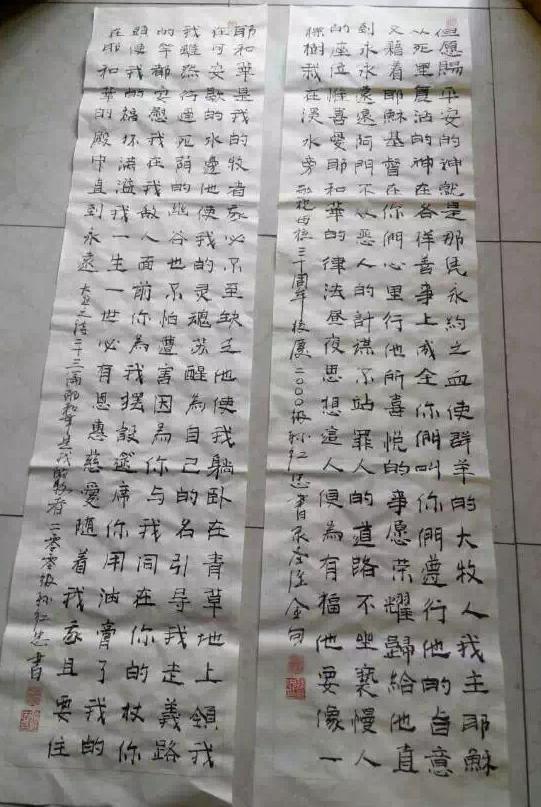 但愿賜平安的神就是那凭永約之血使群羊的大牧人我主耶稣
从死里复活的神在各样善事上成全你們叫你們遵行他的旨意
又藉着耶稣基督在你們心里行他所喜悦的事愿荣耀歸給他直
到永永遠遠阿門不从恶人的計谋不站罪人的道路不坐亵慢人
的座位惟喜爱耶和華的律法昼夜思想這人便為有福他要像一
棵樹栽在溪水旁 敬祝母校三十周年校慶 二〇〇〇级孙仁忠書录圣经金句
耶和華是我的牧者我必不至缺乏他使我躺卧在青草地上領我
在可安歇的水邊他使我的灵魂苏醒為自己的名引导我走義路
我雖然行過死荫的幽谷也不怕遭害因為你与我同在你的杖你
的竿都安慰我在我敌人面前你為我摆設筵席你用油膏了我的
頭使我的福杯满溢我一生一世必有恩惠慈愛随着我我且要住
在耶和華的殿中直到永遠 大卫之诗二十三篇耶和華是我的牧者 二零零级孙仁忠書